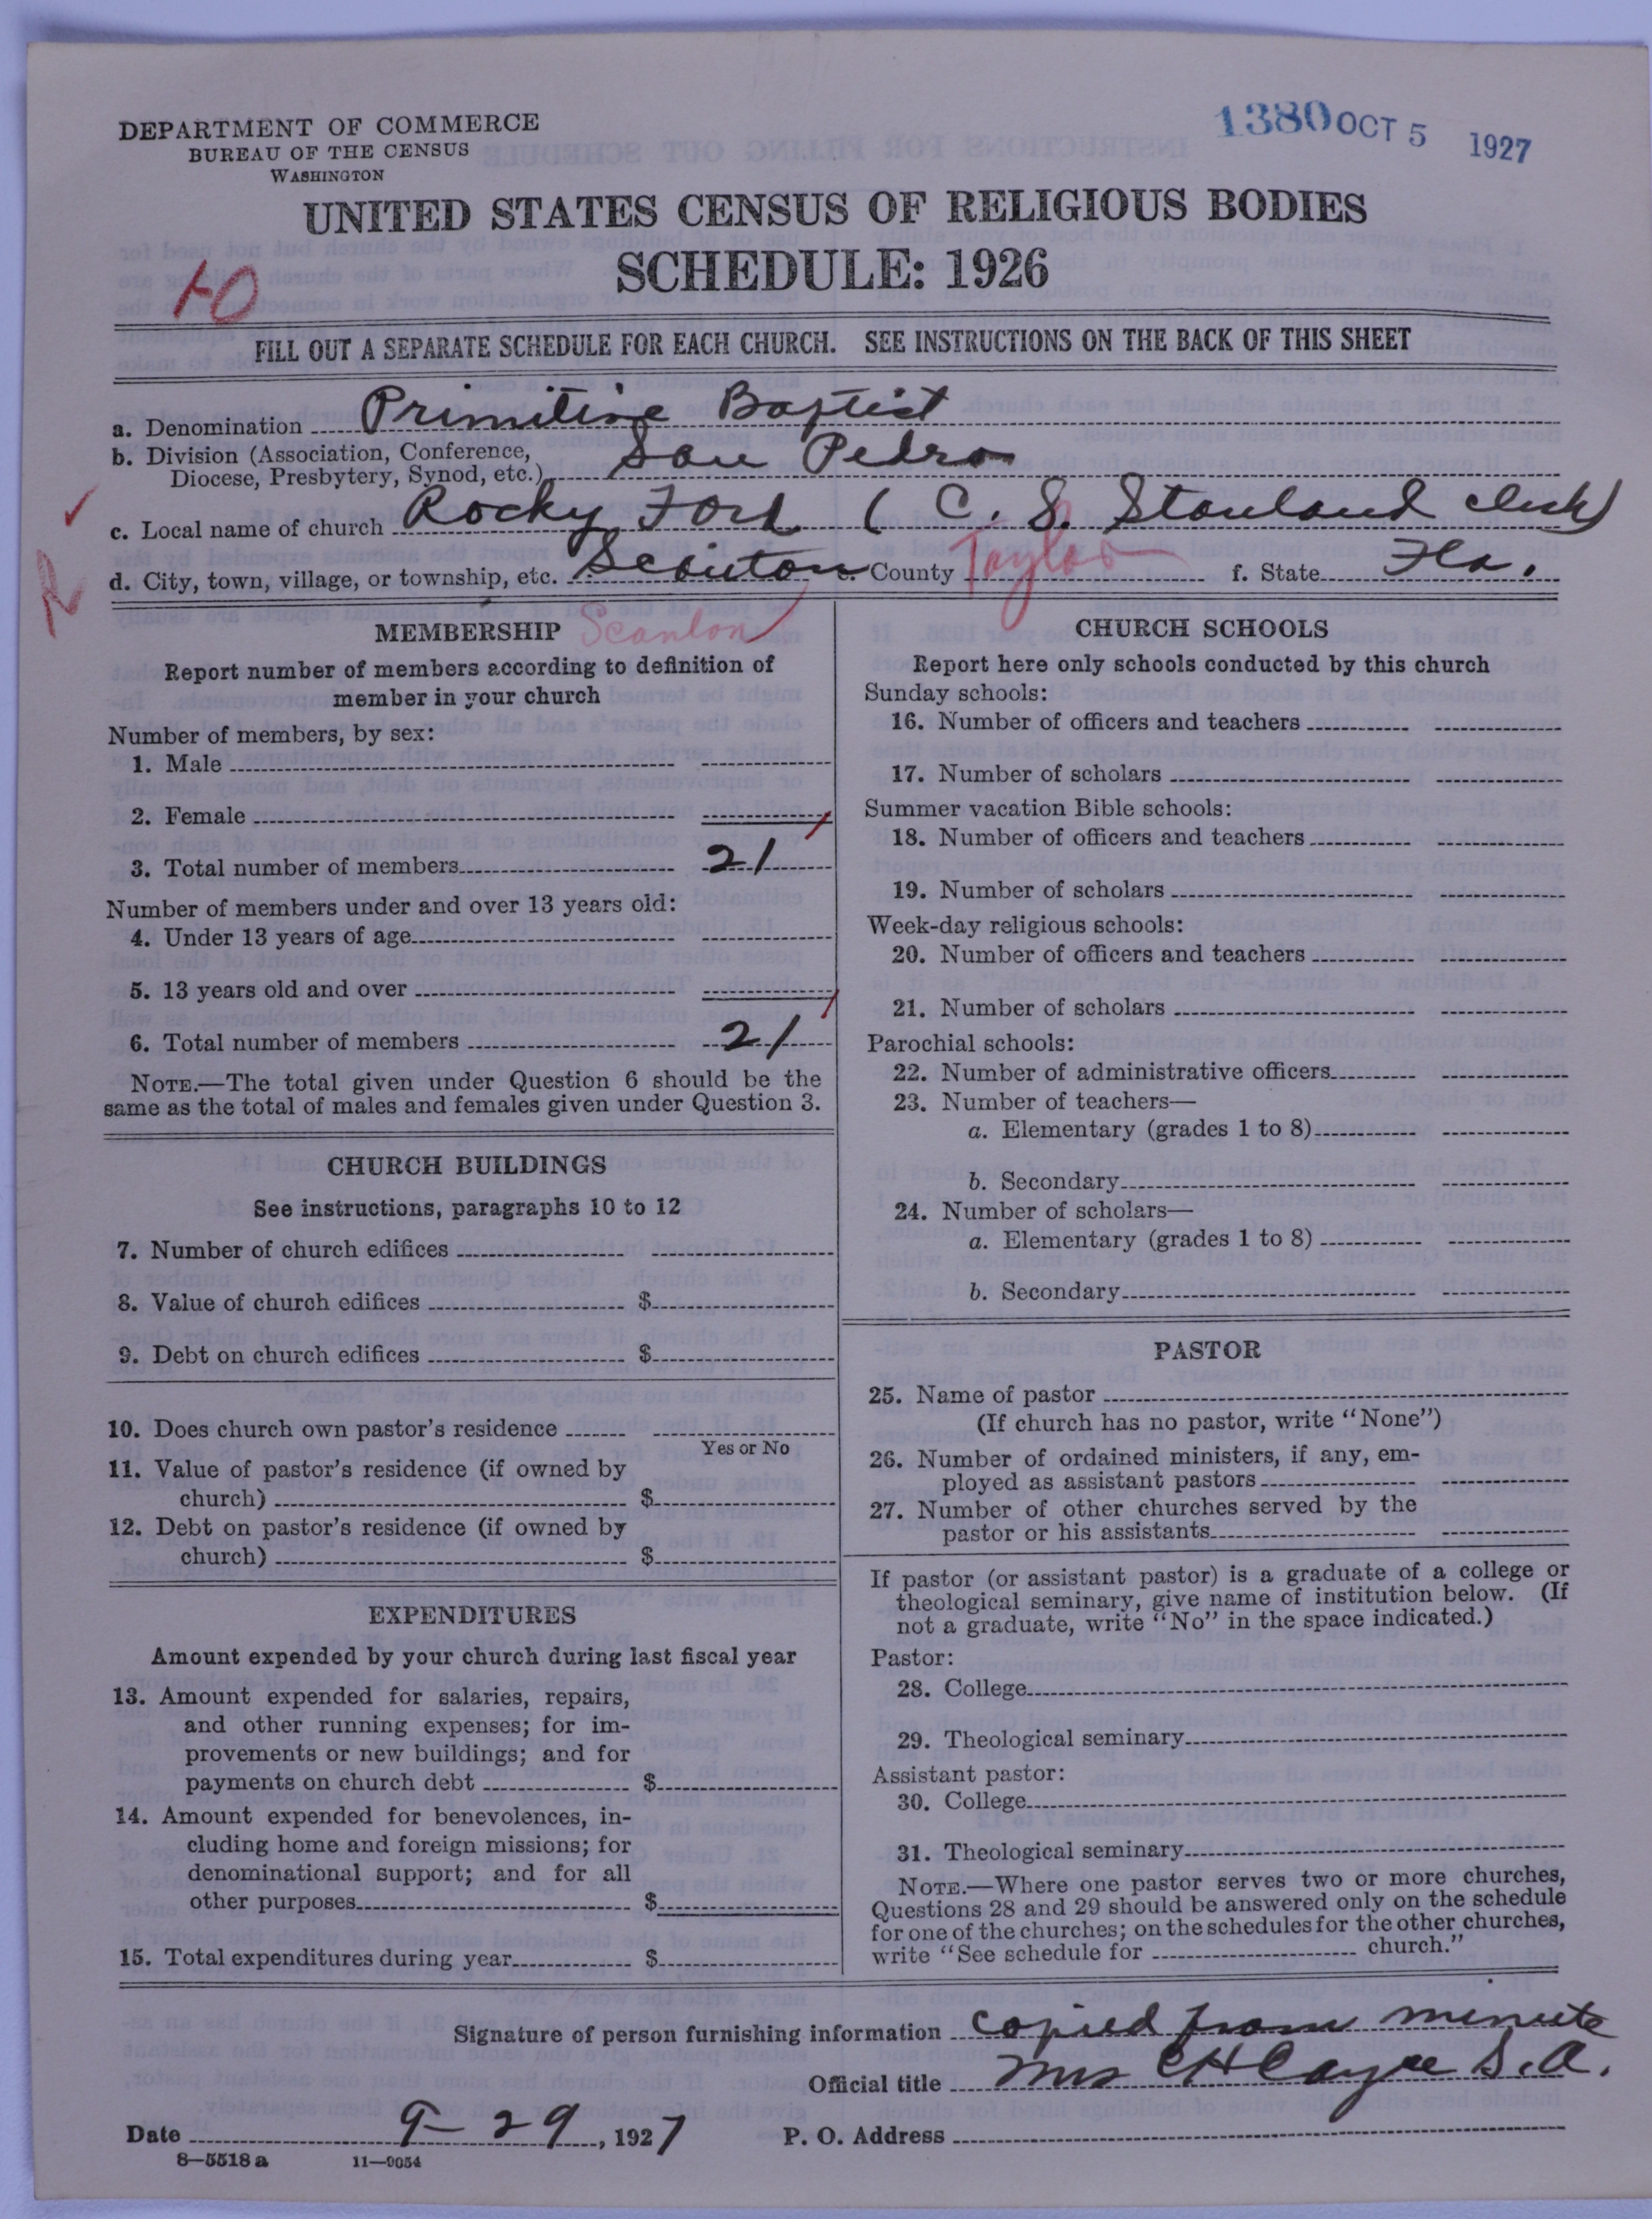 DEPARTMENT OF COMMERCE
BUREAU OF THE CENSUS
WASHINGTON
1380 OCT 5 1927
UNITED STATES CENSUS OF RELIGIOUS BODIES
SCHEDULE: 1926
FILL OUT A SEPARATE SCHEDULE FOR EACH CHURCH. SEE INSTRUCTIONS ON THE BACK OF THIS SHEET
a. Denomination Primitive Baptist
b. Division (Association, Conference,
Diocese, Presbytery, Synod, etc.) San Pedro
c. Local name of church Rocky Ford ( C. S. Stanland clerk)
d. City, town, village, or township, etc. Scanton e. County Taylor f. State Fla.
MEMBERSHIP Scanlon
Report number of members according to definition of
member in your church
Number of members, by sex:
1. Male
2. Female
3. Total number of members 21
Number of members under and over 13 years old:
4. Under 13 years of age
5. 13 years old and over
6. Total number of members 21
NOTE.—The total given under Question 6 should be the
same as the total of males and females given under Question 3.
CHURCH BUILDINGS
See instructions, paragraphs 10 to 12
7. Number of church edifices
8. Value of church edifices $
9. Debt on church edifices $
10. Does church own pastor's residence
Yes or No
11. Value of pastor's residence (if owned by
church) $
12. Debt on pastor's residence (if owned by
church) $
EXPENDITURES
Amount expended by your church during last fiscal year
13. Amount expended for salaries, repairs,
and other running expenses; for im-
provements or new buildings; and for
payments on church debt $
14. Amount expended for benevolences, in-
cluding home and foreign missions; for
denominational support; and for all
other purposes $
15. Total expenditures during year $
CHURCH SCHOOLS
Report here only schools conducted by this church
Sunday schools:
16. Number of officers and teachers
17. Number of scholars
Summer vacation Bible schools:
18. Number of officers and teachers
19. Number of scholars
Week-day religious schools:
20. Number of officers and teachers
21. Number of scholars
Parochial schools:
22. Number of administrative officers
23. Number of teachers—
a. Elementary (grades 1 to 8)
b. Secondary
24. Number of scholars—
a. Elementary (grades 1 to 8)
b. Secondary
PASTOR
25. Name of pastor
(If church has no pastor, write "None")
26. Number of ordained ministers, if any, em-
ployed as assistant pastors
27. Number of other churches served by the
pastor or his assistants
If pastor (or assistant pastor) is a graduate of a college or
theological seminary, give name of institution below. (If
not a graduate, write "No" in the space indicated.)
Pastor:
28. College
29. Theological seminary
Assistant pastor:
30. College
31. Theological seminary
NOTE.—Where one pastor serves two or more churches,
Questions 28 and 29 should be answered only on the schedule
for one of the churches; on the schedules for the other churches,
write "See schedule for church."
Signature of person furnishing information copied from minute
Official title Mrs C H Cayce S. A.
Date 9-29, 1927 P. O. Address
8—5518a 11—9054